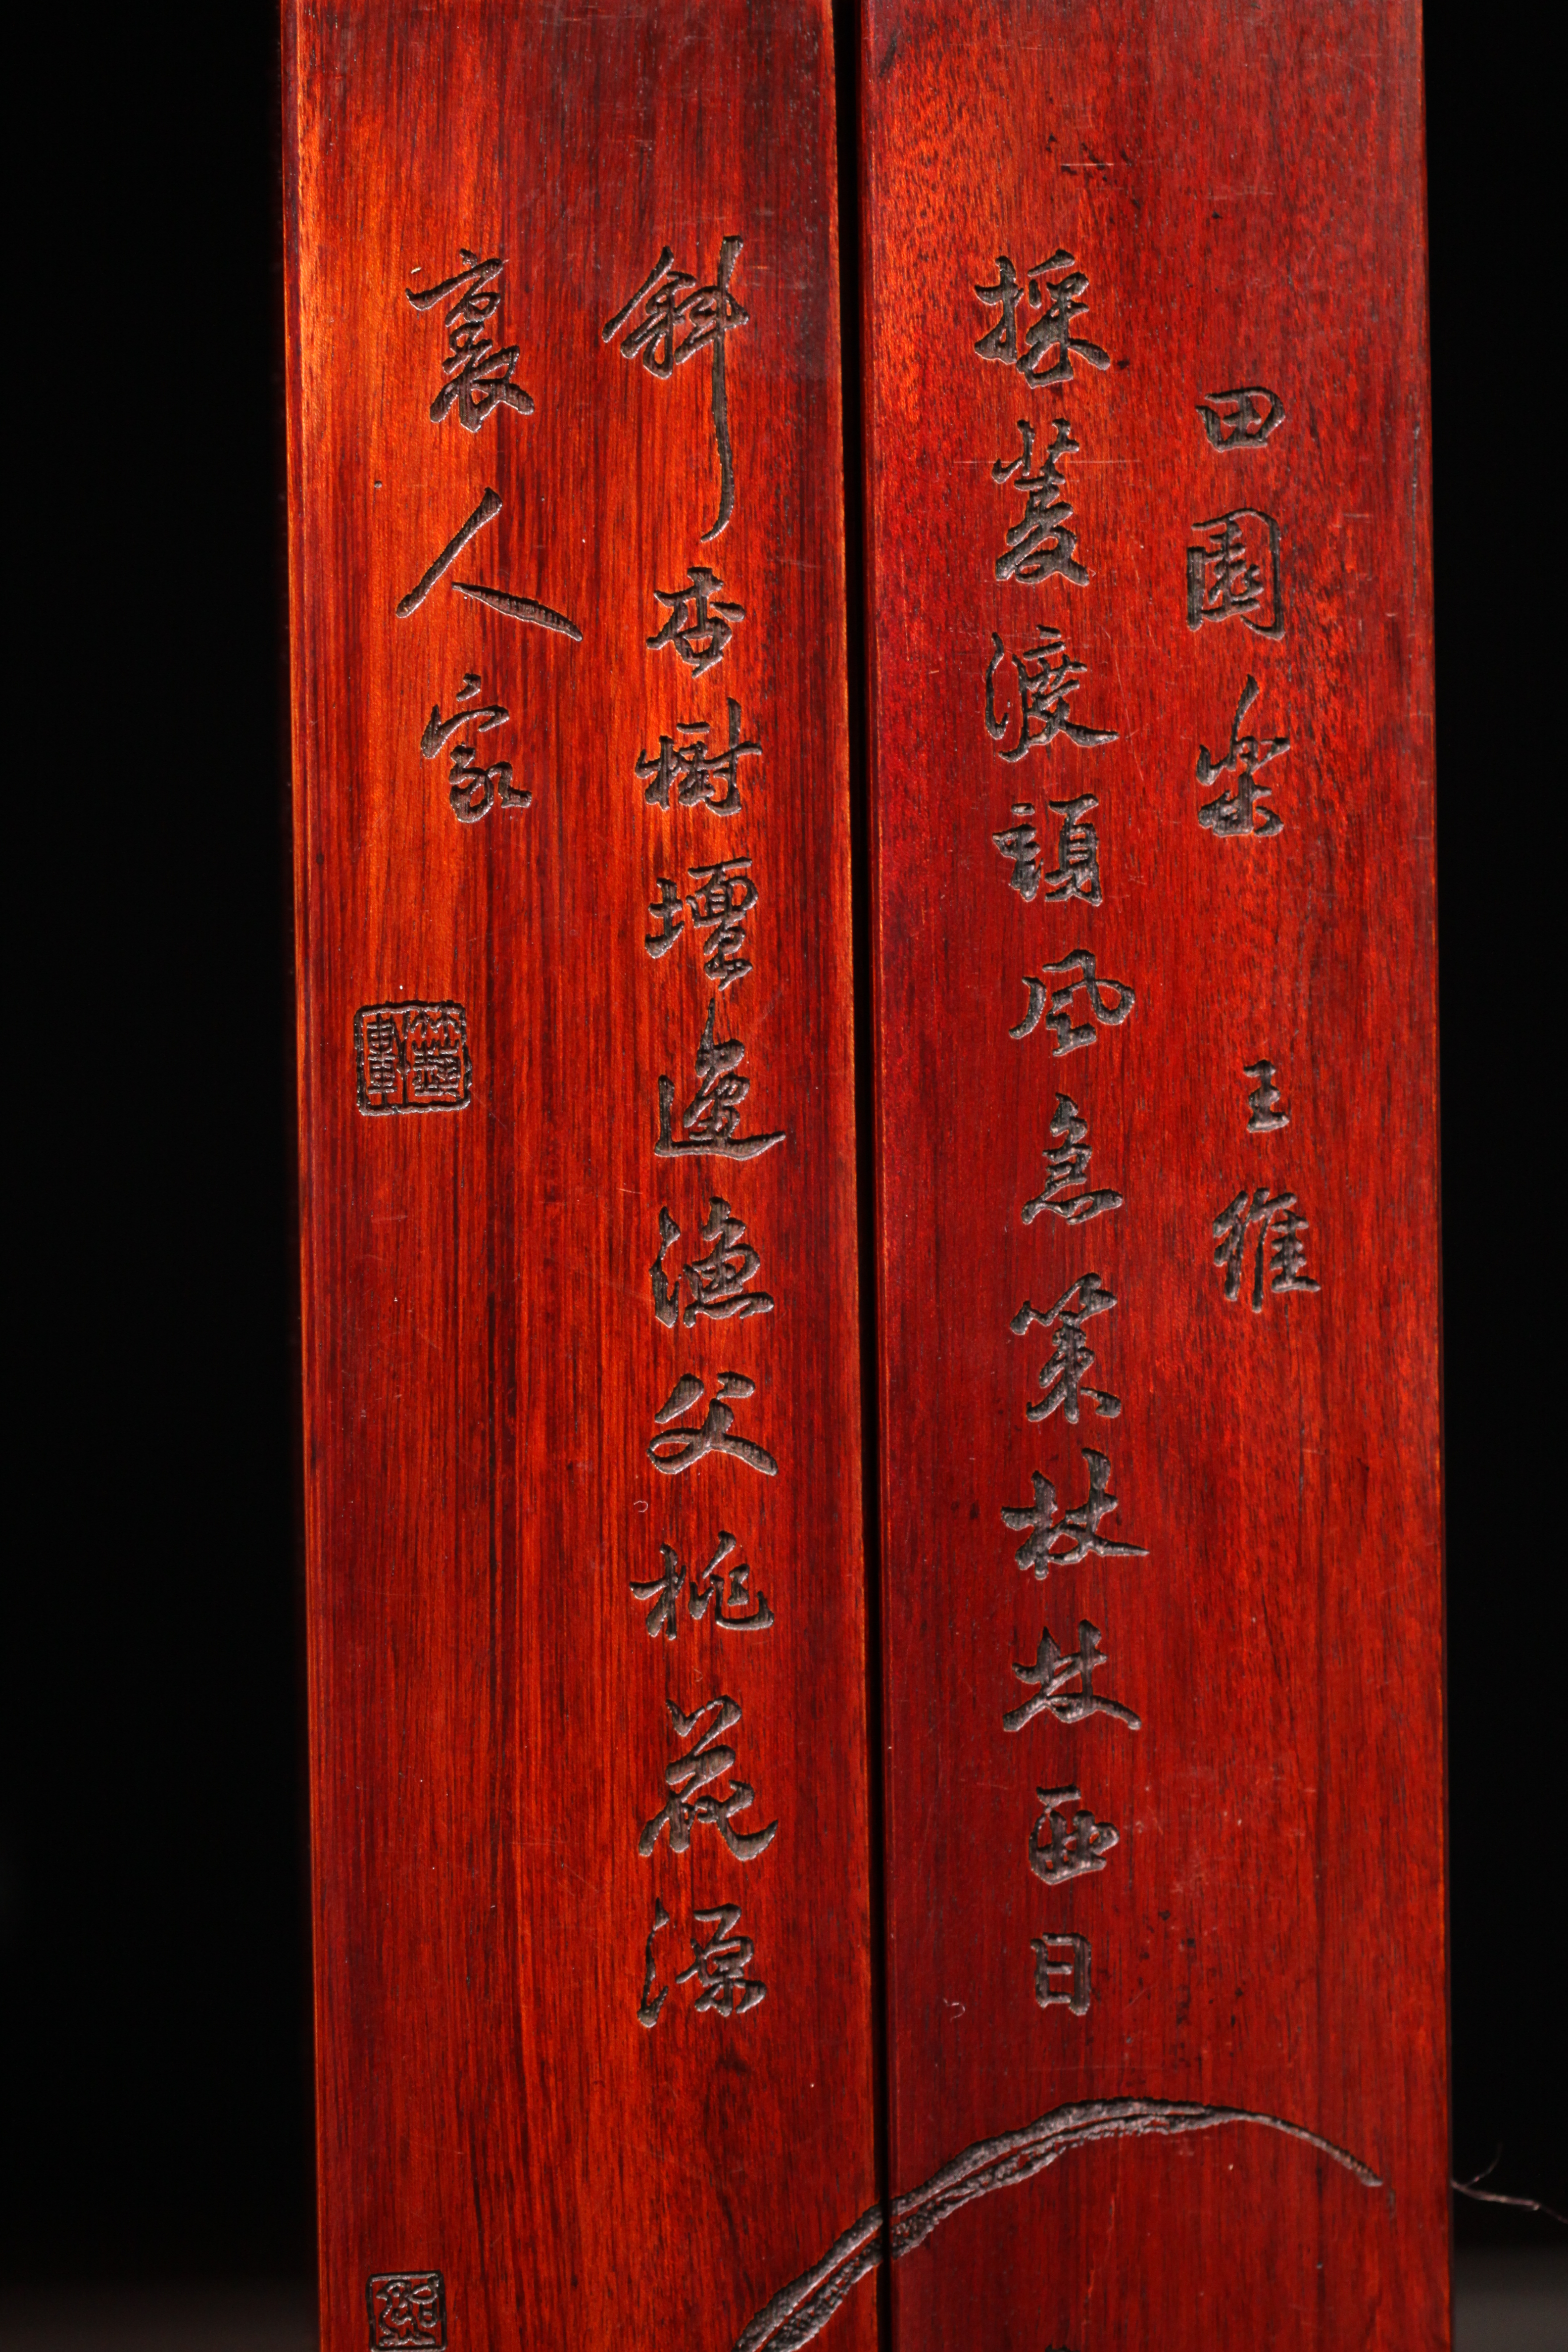 田園樂 王維
採菱渡頭風急策杖林西日
斜杏樹壇邊漁父桃花源
裏人家